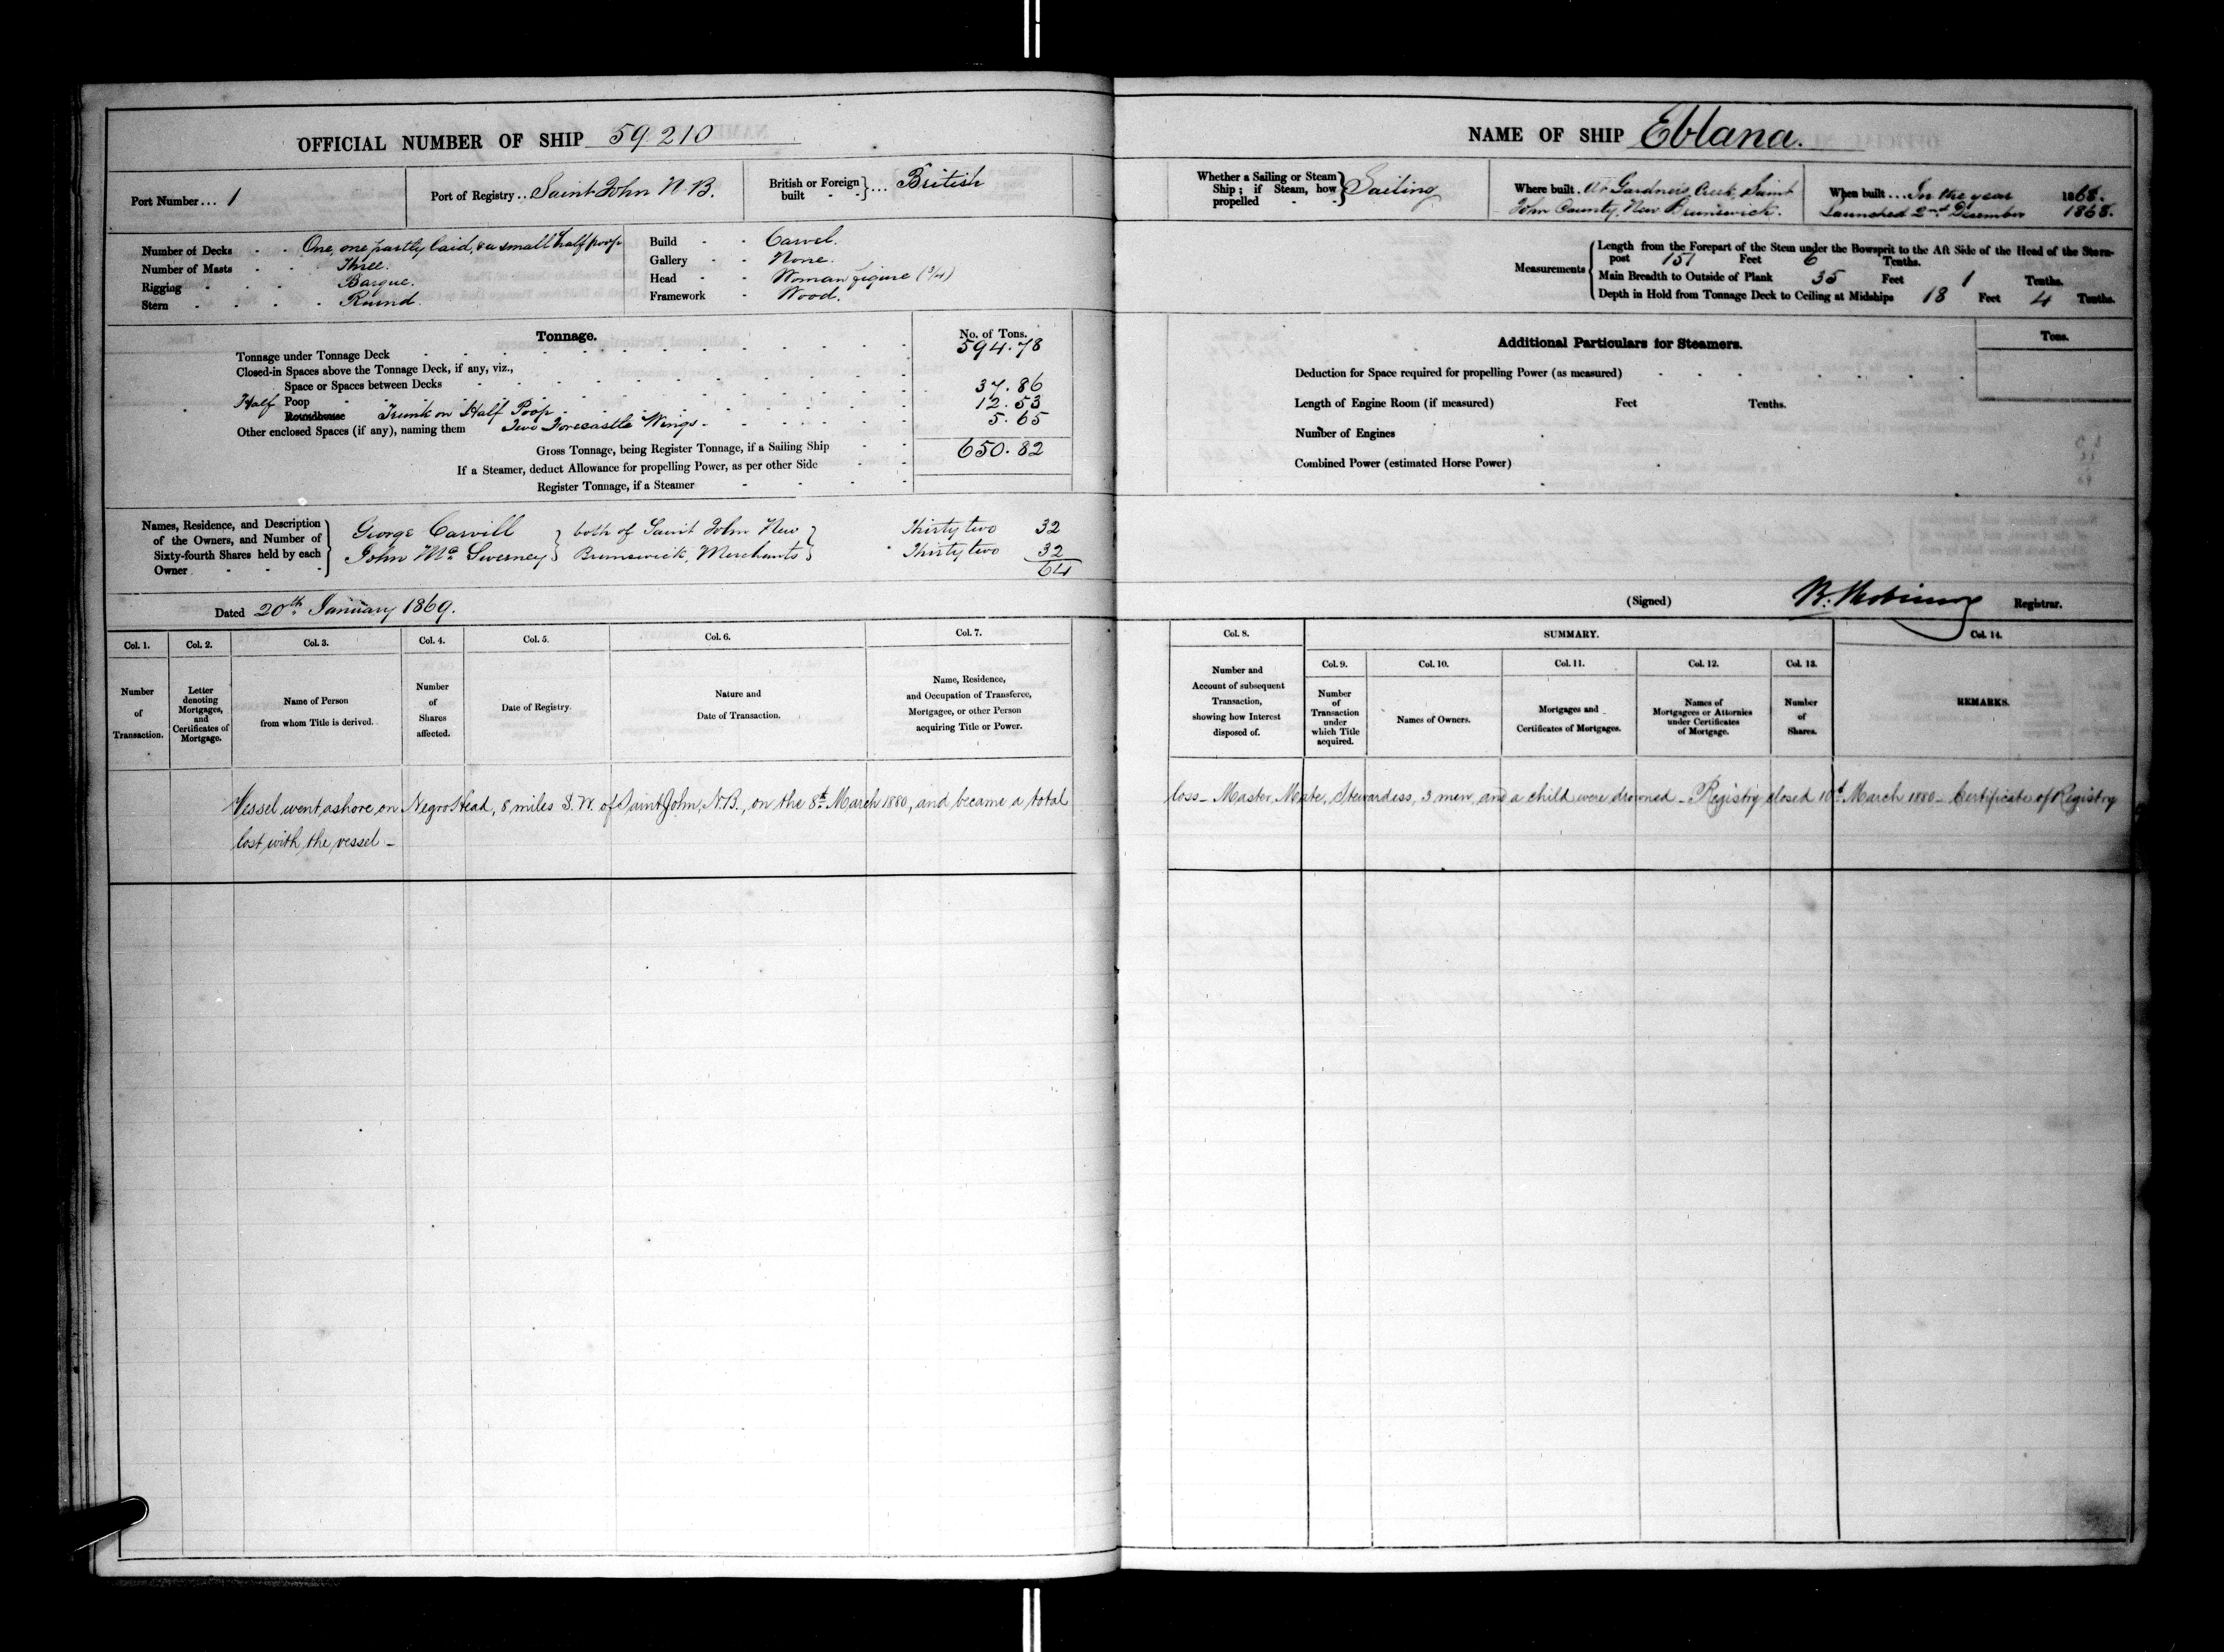 OFFICIAL NUMBER OF SHIP 59.210
Port Number... 1
Port of Registry.. Saint John N.B.
British or Foreign built }... British
Number of Decks - - One, one partly laid, & a small half poop
Number of Masts - Three.
Rigging - - - Barque.
Stern - - - - Round.
Build - - Carvel.
Gallery - - None.
Head - - Woman figure (3/4)
Framework - Wood.
Tonnage.
No. of Tons.
Tonnage under Tonnage Deck 594.78
Closed-in Spaces above the Tonnage Deck, if any, viz.,
Space or Spaces between Decks
Half Poop 37.86
Roundhouse Trunk on Half Poop 12.53
Other enclosed Spaces (if any), naming them Two Forecastle Wings 5.65
Gross Tonnage, being Register Tonnage, if a Sailing Ship 650.82
If a Steamer, deduct Allowance for propelling Power, as per other Side
Register Tonnage, if a Steamer
Names, Residence, and Description of the Owners, and Number of Sixty-fourth Shares held by each Owner
George Carvill } both of Saint John New } Thirty two 32
John McSweeney } Brunswick, Merchants } Thirty two 32
64
Dated 20th January 1869.
Col. 1. Col. 2. Col. 3. Col. 4. Col. 5. Col. 6. Col. 7.
Number of Transaction.
Letter denoting Mortgages, and Certificates of Mortgage.
Name of Person from whom Title is derived.
Number of Shares affected.
Date of Registry.
Nature and Date of Transaction.
Name, Residence, and Occupation of Transferee, Mortgagee, or other Person acquiring Title or Power.
Vessel went ashore on Negro Head, 8 miles S.W. of Saint John, N.B., on the 8th March 1880, and became a total
lost with the vessel -
NAME OF SHIP Eblana.
Whether a Sailing or Steam Ship; if Steam, how propelled } Sailing
Where built. At Gardner's Creek, Saint
John County, New Brunswick.
When built... In the year 1868.
Launched 2nd December 1868.
Measurements
Length from the Forepart of the Stem under the Bowsprit to the Aft Side of the Head of the Stern-
post 151 Feet 6 Tenths.
Main Breadth to Outside of Plank 35 Feet 1 Tenths.
Depth in Hold from Tonnage Deck to Ceiling at Midships 18 Feet 4 Tenths.
Additional Particulars for Steamers.
Tons.
Deduction for Space required for propelling Power (as measured)
Length of Engine Room (if measured) Feet Tenths.
Number of Engines
Combined Power (estimated Horse Power)
(Signed) Registrar.
Col. 8. SUMMARY. Col. 14.
Col. 9. Col. 10. Col. 11. Col. 12. Col. 13.
Number and Account of subsequent Transaction, showing how Interest disposed of.
Number of Transaction under which Title acquired.
Names of Owners.
Mortgages and Certificates of Mortgages.
Names of Mortgagees or Attornies under Certificates of Mortgage.
Number of Shares.
REMARKS.
loss - Master, Mate, Stewardess, 3 men, and a child were drowned - Registry closed 10th March 1880 - Certificate of Registry